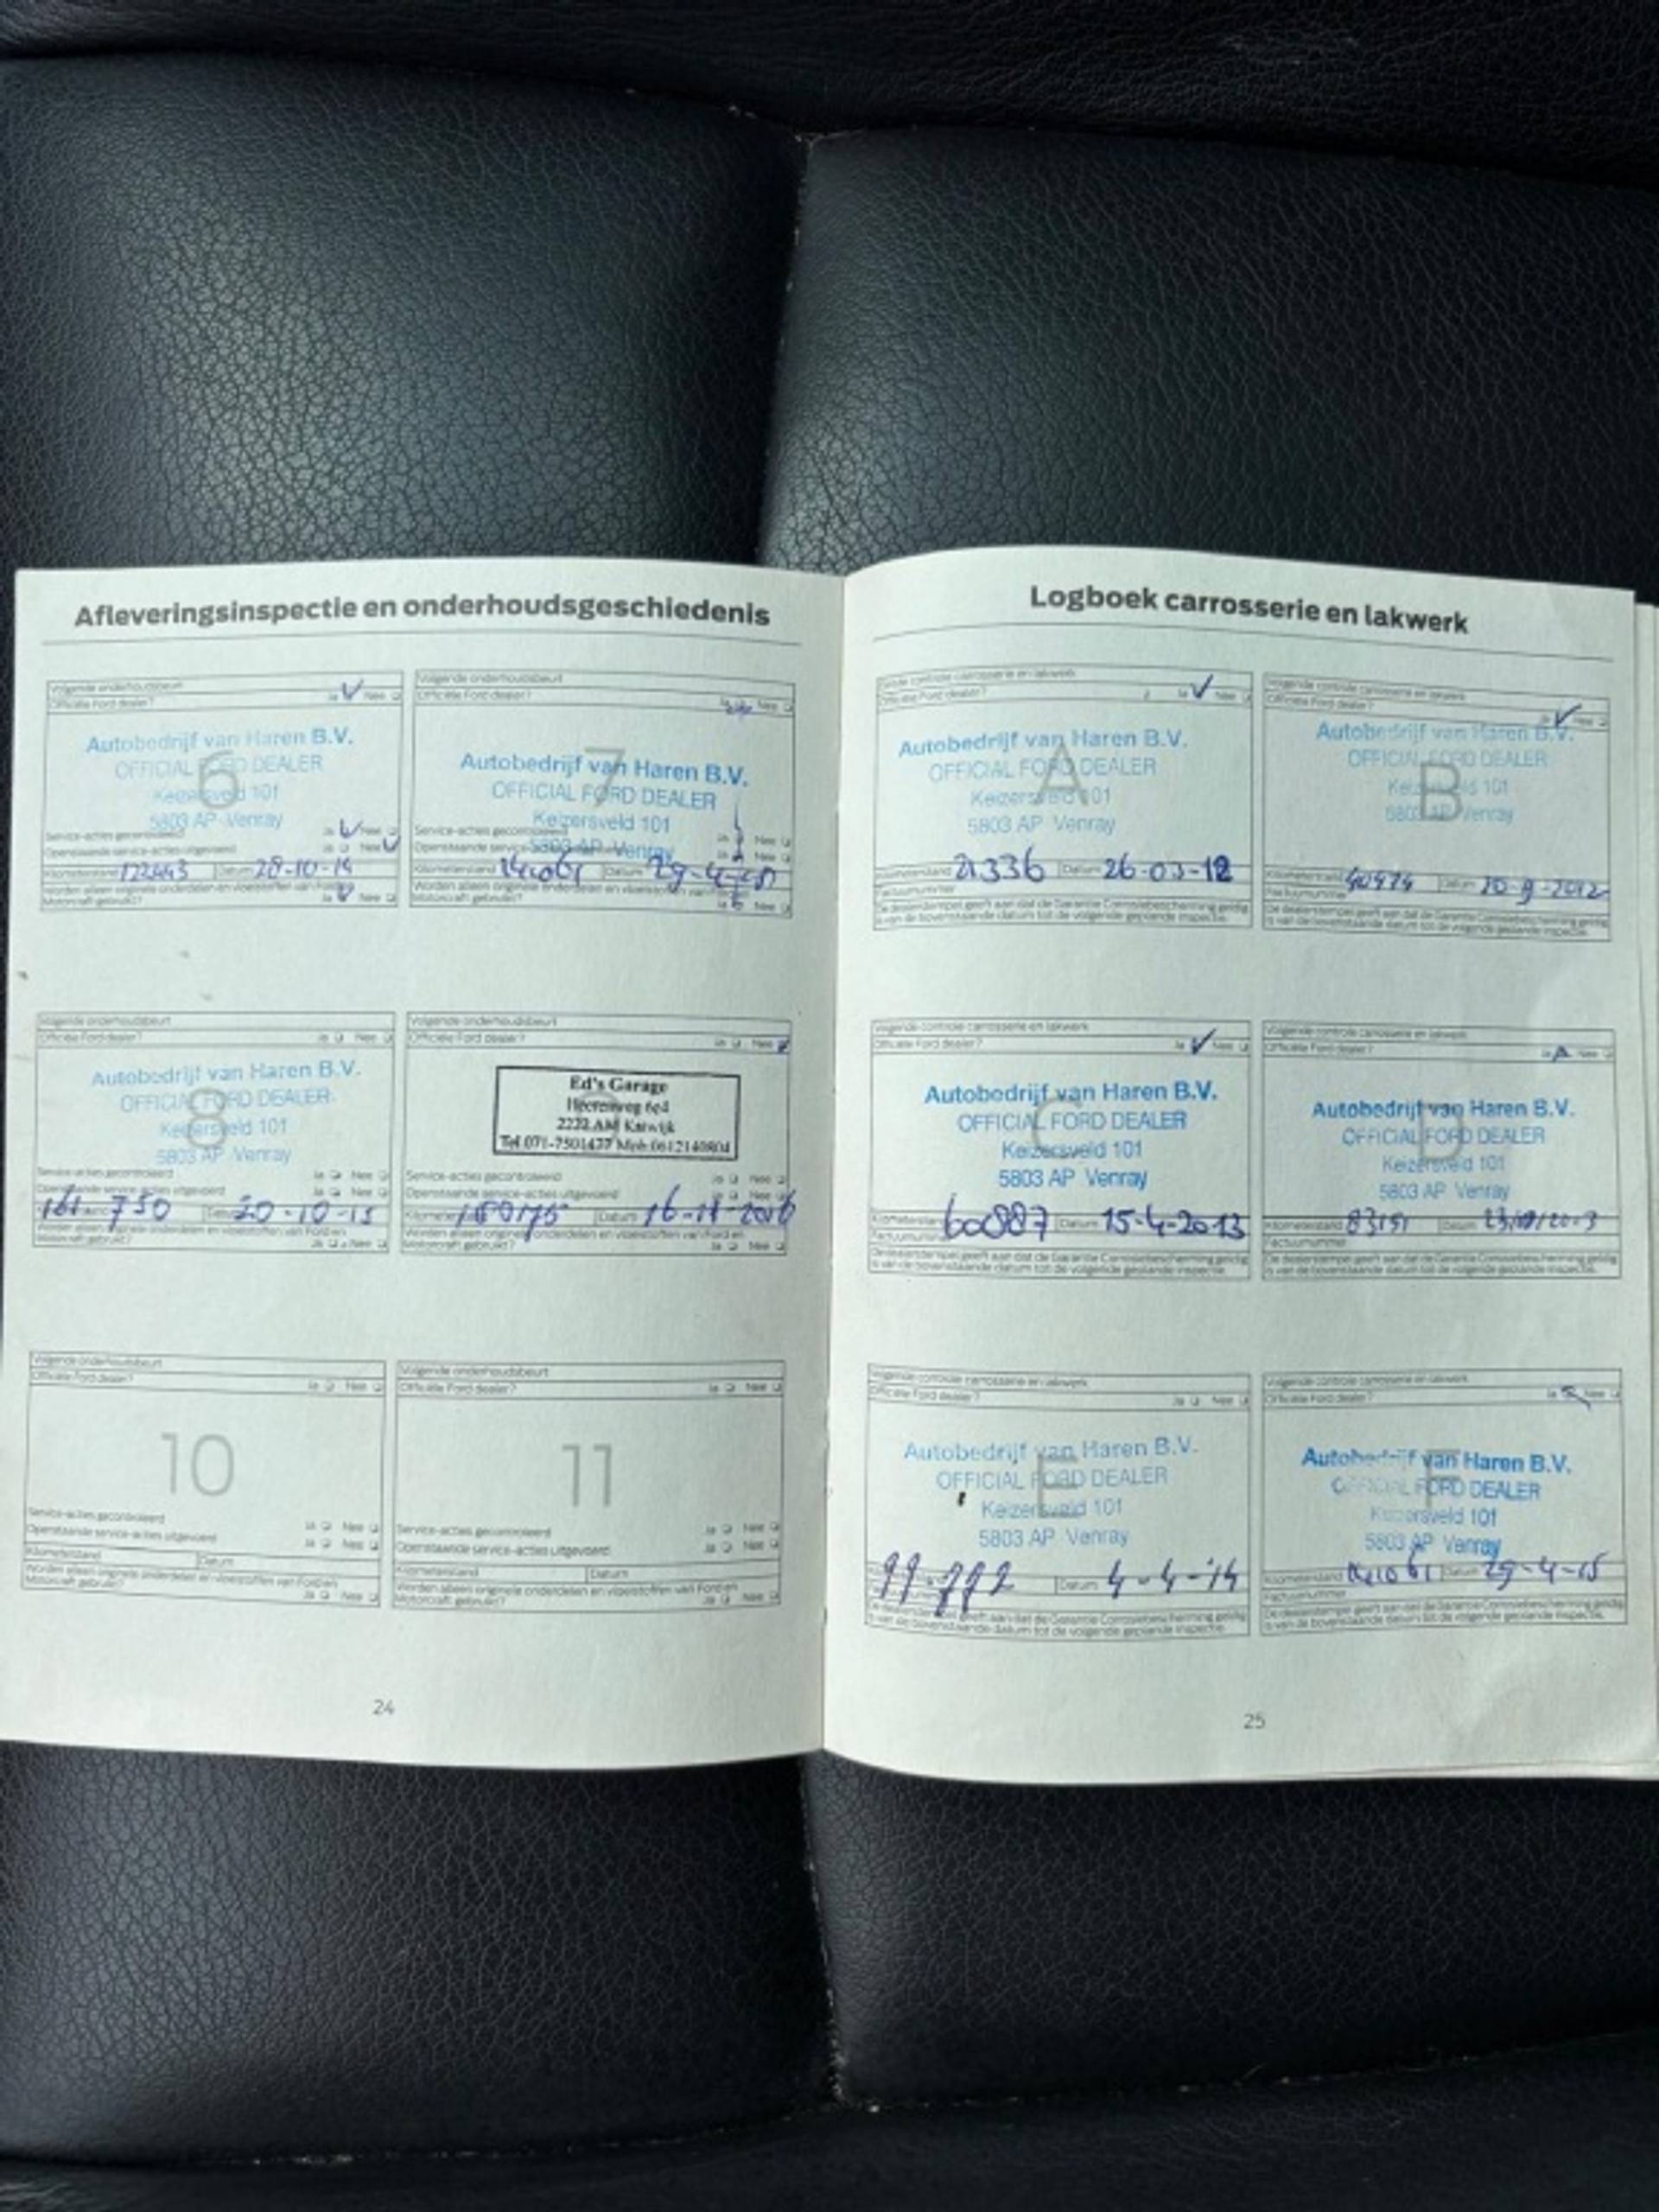 Afleveringsinspectie en onderhoudsgeschiedenis
Volgende onderhoudsbeurt
Officiële Ford dealer? Ja Nee
6
Autobedrijf van Haren B.V.
OFFICIAL FORD DEALER
Keizersveld 101
5803 AP Venray
Service-acties gecontroleerd Ja Nee
Openstaande service-acties uitgevoerd Ja Nee
Kilometerstand Datum 28-10-14
Worden alleen originele onderdelen en vloeistoffen van Ford en
Motorcraft gebruikt? Ja Nee
Volgende onderhoudsbeurt
Officiële Ford dealer? Nee
7
Autobedrijf van Haren B.V.
OFFICIAL FORD DEALER
Keizersveld 101
5803 AP Venray
Service-acties gecontroleerd Ja Nee
Openstaande service-acties Ja Nee
Kilometerstand 141061 Datum 29-4-15
Worden alleen originele onderdelen en vloeistoffen van
Motorcraft gebruikt? Ja Nee
Volgende onderhoudsbeurt
Officiële Ford dealer? Ja Nee
8
Autobedrijf van Haren B.V.
OFFICIAL FORD DEALER
Keizersveld 101
5803 AP Venray
Service-acties gecontroleerd Ja Nee
Openstaande service-acties uitgevoerd Ja Nee
161 750 20-10-15
Worden alleen originele onderdelen en vloeistoffen van Ford en
Motorcraft gebruikt? Ja Nee
Volgende onderhoudsbeurt
Officiële Ford dealer? Ja Nee
Ed's Garage
Heerenweg
2222 AM Katwijk
Tel.071-7501437
Service-acties gecontroleerd Ja Nee
Openstaande service-acties uitgevoerd Ja Nee
180175 Datum 16-11-2016
Worden alleen originele onderdelen en vloeistoffen van Ford en
Motorcraft gebruikt? Ja Nee
Volgende onderhoudsbeurt
Officiële Ford dealer? Ja Nee
10
Service-acties gecontroleerd Ja Nee
Openstaande service-acties uitgevoerd Ja Nee
Kilometerstand Datum
Worden alleen originele onderdelen en vloeistoffen van Ford en
Motorcraft gebruikt? Ja Nee
Volgende onderhoudsbeurt
Officiële Ford dealer? Ja Nee
11
Service-acties gecontroleerd Ja Nee
Openstaande service-acties uitgevoerd Ja Nee
Kilometerstand Datum
Worden alleen originele onderdelen en vloeistoffen van Ford en
Motorcraft gebruikt? Ja Nee
24
Logboek carrosserie en lakwerk
Volgende controle carrosserie en lakwerk
Officiële Ford dealer? Ja Nee
A
Autobedrijf van Haren B.V.
OFFICIAL FORD DEALER
Keizersveld 101
5803 AP Venray
Kilometerstand 21336 Datum 26-03-12
Factuurnummer
De dealerstempel geeft aan dat de Garantie Corrosiebescherming geldig
is van de bovenstaande datum tot de volgende geplande inspectie.
Volgende controle carrosserie en lakwerk
Officiële Ford dealer? Nee
B
Autobedrijf van Haren B.V.
OFFICIAL FORD DEALER
Keizersveld 101
5803 AP Venray
Kilometerstand 40974 Datum 20-9-2012
Factuurnummer
De dealerstempel geeft aan dat de Garantie Corrosiebescherming geldig
is van de bovenstaande datum tot de volgende geplande inspectie.
Volgende controle carrosserie en lakwerk
Officiële Ford dealer? Ja Nee
C
Autobedrijf van Haren B.V.
OFFICIAL FORD DEALER
Keizersveld 101
5803 AP Venray
Kilometerstand 60887 Datum 15-4-2013
Factuurnummer
De dealerstempel geeft aan dat de Garantie Corrosiebescherming geldig
is van de bovenstaande datum tot de volgende geplande inspectie.
Volgende controle carrosserie en lakwerk
Officiële Ford dealer? Nee
D
Autobedrijf van Haren B.V.
OFFICIAL FORD DEALER
Keizersveld 101
5803 AP Venray
Kilometerstand 83151 Datum
Factuurnummer
De dealerstempel geeft aan dat de Garantie Corrosiebescherming geldig
is van de bovenstaande datum tot de volgende geplande inspectie.
Volgende controle carrosserie en lakwerk
Officiële Ford dealer? Ja Nee
E
Autobedrijf van Haren B.V.
OFFICIAL FORD DEALER
Keizersveld 101
5803 AP Venray
Datum 4-4-'14
De dealerstempel geeft aan dat de Garantie Corrosiebescherming geldig
is van de bovenstaande datum tot de volgende geplande inspectie.
Volgende controle carrosserie en lakwerk
Officiële Ford dealer? Ja Nee
F
Autobedrijf van Haren B.V.
OFFICIAL FORD DEALER
Keizersveld 101
5803 AP Venray
Kilometerstand 141061 Datum 29-4-15
Factuurnummer
De dealerstempel geeft aan dat de Garantie Corrosiebescherming geldig
is van de bovenstaande datum tot de volgende geplande inspectie.
25